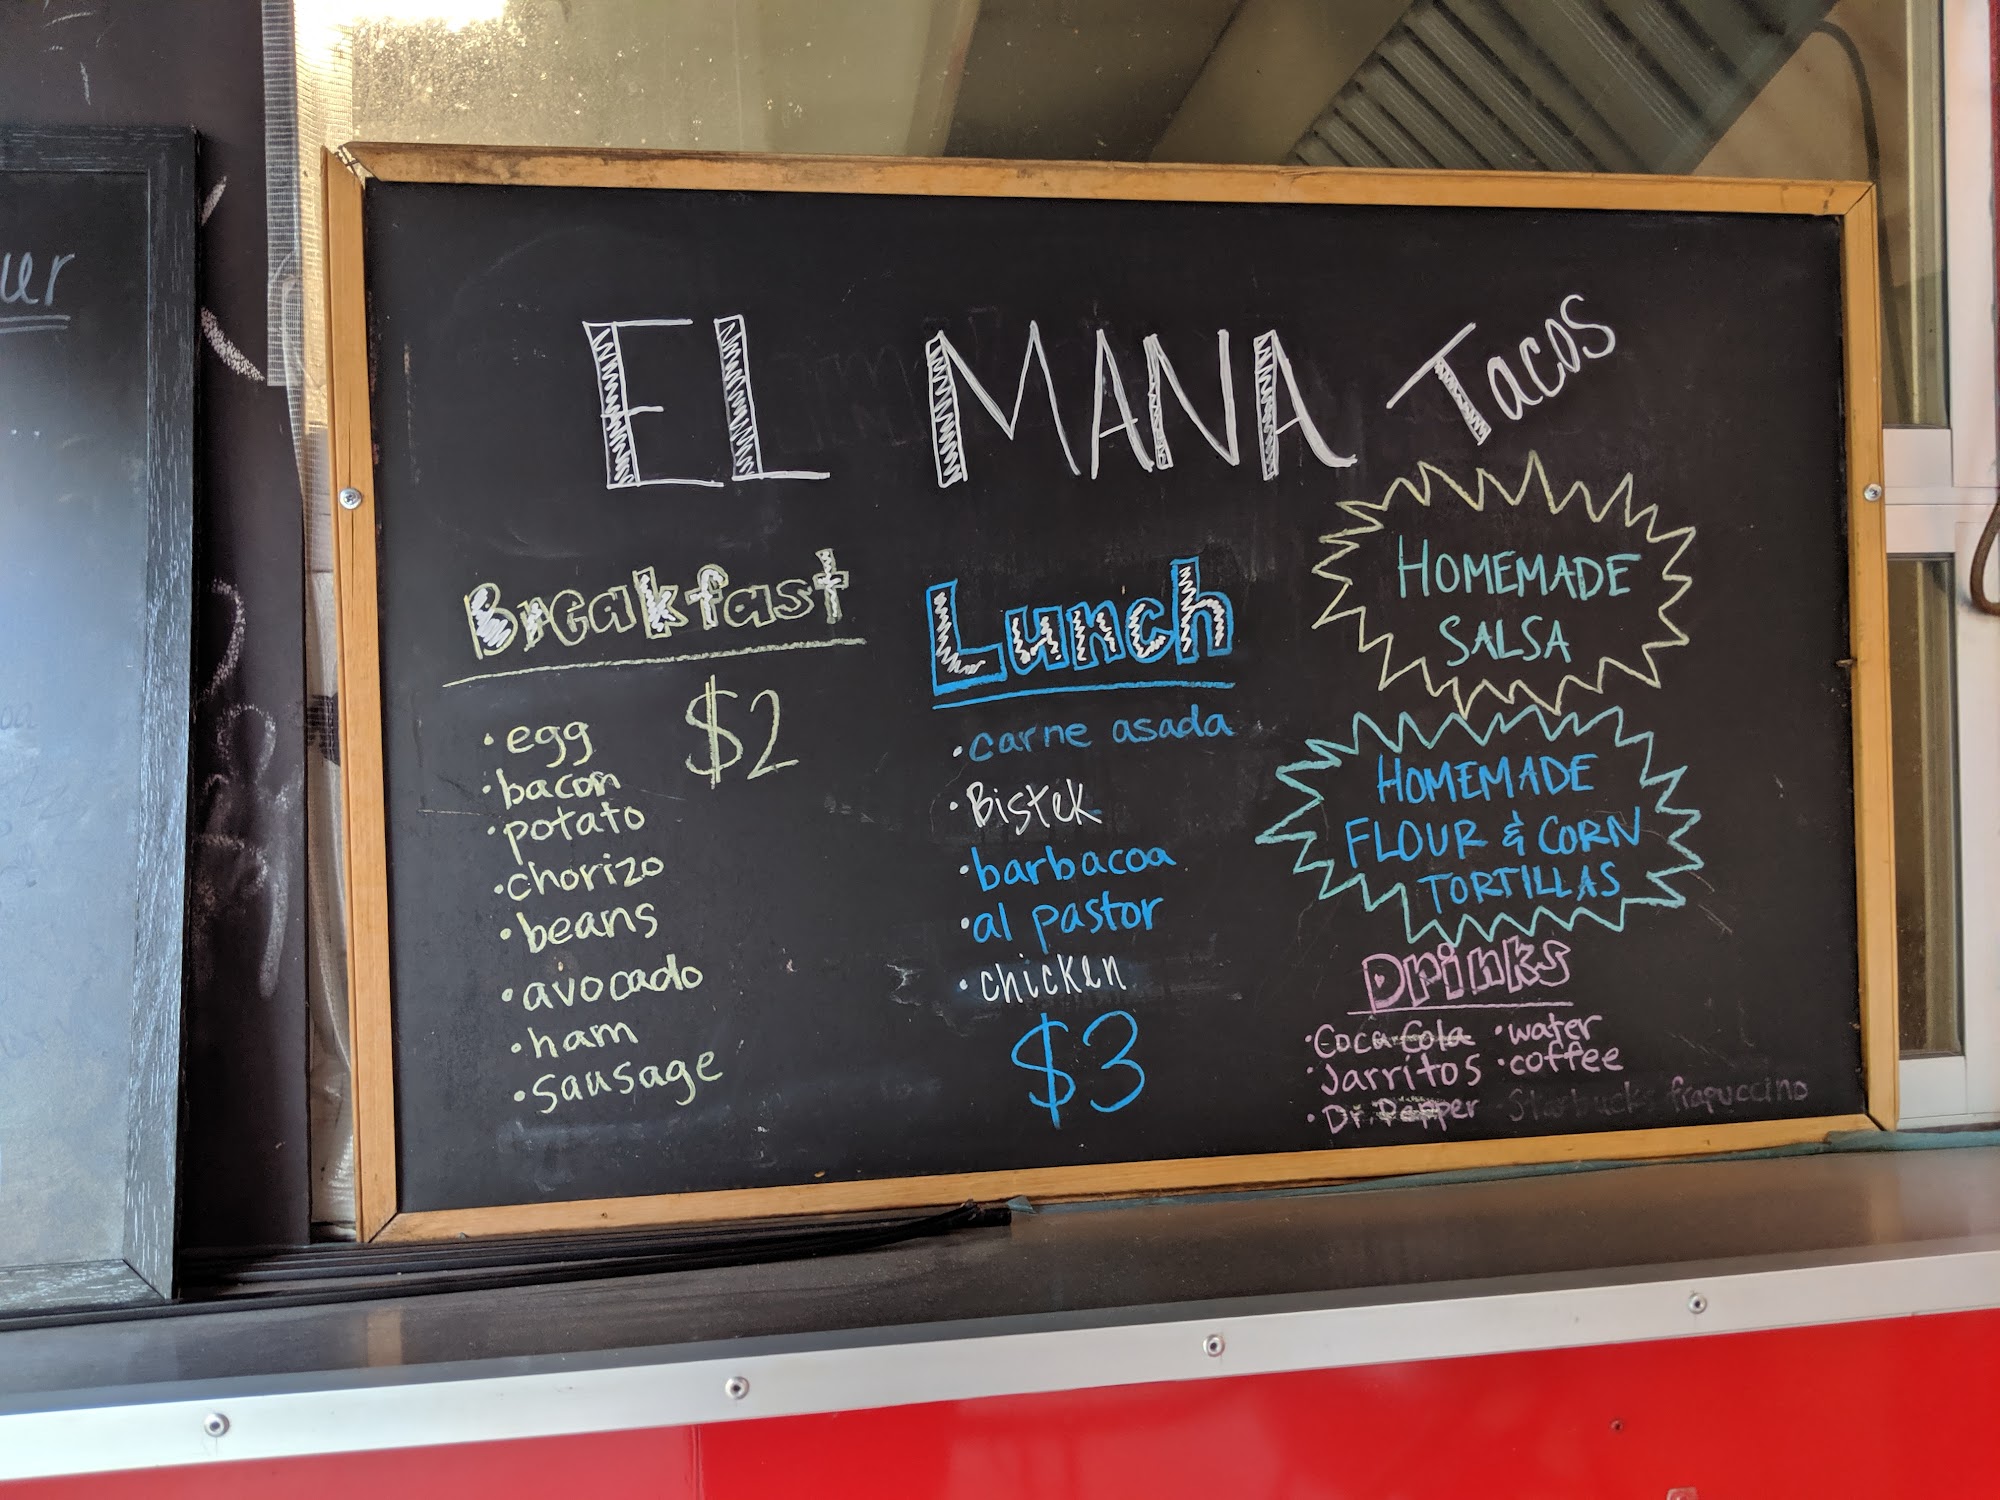 EL MANA Tacos
Breakfast
$2
• egg
• bacon
• potato
• chorizo
• beans
• avocado
• ham
• sausage
Lunch
• carne asada
• Bistek
• barbacoa
• al pastor
• chicken
$3
HOMEMADE
SALSA
HOMEMADE
FLOUR & CORN
TORTILLAS
Drinks
• Coca-Cola • water
• Jarritos • coffee
• Dr. Pepper • Starbucks frapuccino
ur